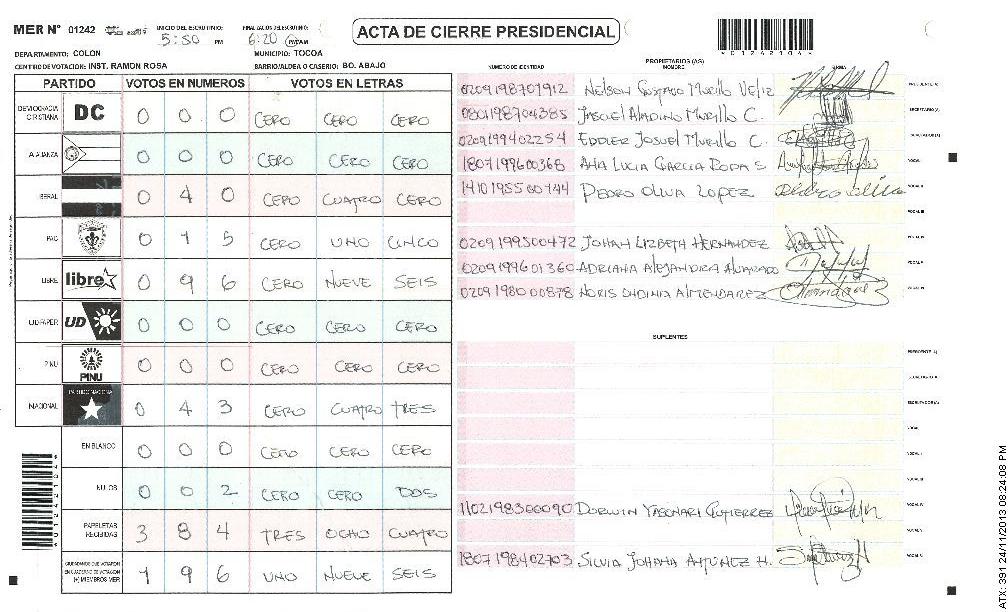 MER Nº 01242
INICIO DEL ESCRUTINIO: 5:50 PM
FINALIZACION DEL ESCRUTINIO: 6:20 PM/AM
ACTA DE CIERRE PRESIDENCIAL
DEPARTAMENTO: COLON
MUNICIPIO: TOCOA
CENTRO DE VOTACION: INST. RAMON ROSA
BARRIO/ALDEA O CASERIO: BO. ABAJO
PARTIDO VOTOS EN NUMEROS VOTOS EN LETRAS
DEMOCRACIA CRISTIANA DC 0 0 0 CERO CERO CERO
ALIANZA 0 0 0 CERO CERO CERO
LIBERAL 0 4 0 CERO CUATRO CERO
PAC 0 1 5 CERO UNO CINCO
LIBRE libre 0 9 6 CERO NUEVE SEIS
UD-FAPER UD 0 0 0 CERO CERO CERO
PINU PINU 0 0 0 CERO CERO CERO
NACIONAL PARTIDO NACIONAL 0 4 3 CERO CUATRO TRES
EN BLANCO 0 0 0 CERO CERO CERO
NULOS 0 0 2 CERO CERO DOS
PAPELETAS RECIBIDAS 3 8 4 TRES OCHO CUATRO
CIUDADANOS QUE VOTARON EN CUADERNO DE VOTACION (+) MIEMBROS MER 1 9 6 UNO NUEVE SEIS
PROPIETARIOS (AS)
NUMERO DE IDENTIDAD NOMBRE FIRMA
0209198701912 NELSON GUSTAVO MURILLO VELIZ PRESIDENTE (A)
0801198704385 JASUEL ALADINO MURILLO C. SECRETARIO (A)
0209199402254 EDDIER JOSUEL MURILLO C. ESCRUTADOR (A)
1807199600368 ANA LUCIA GARCIA RODAS VOCAL I
1410195500444 PEDRO OLIVA LOPEZ VOCAL II
VOCAL III
0209199500472 JOHAN LIZBETH HERNANDEZ VOCAL IV
0209199601360 ADRIANA ALEJANDRA ALVARADO VOCAL V
0209198000878 NORIS ONDINA ALMENDAREZ VOCAL VI
SUPLENTES
PRESIDENTE (A)
SECRETARIO (A)
ESCRUTADOR (A)
VOCAL I
VOCAL II
VOCAL III
1102198300090 DORWIN YASONARI GUTIERREZ VOCAL IV
VOCAL V
1807198402703 SILVIA JOHANA ANTUNEZ H. VOCAL VI
ATX: 391 24/11/2013 08:24:08 PM